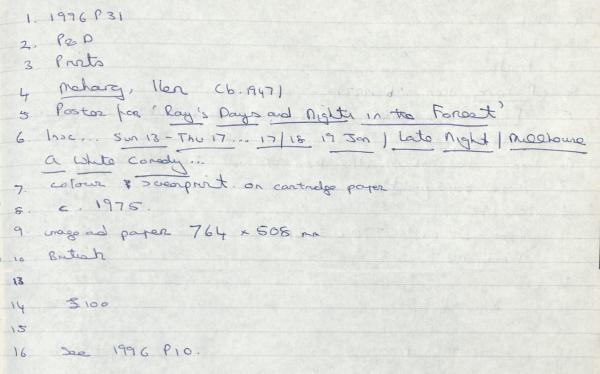 1. 1996 P31
2. P&D
3 Prints
4 Meharg, Ken (b.1947)
5 Poster for 'Ray's Days and Nights in the Forest'
6 Insc... Sun 13 - Thu 17... 17/18 19 Jan / Late Night / Millhouse
A White Comedy...
7. colour screenprint on cartridge paper
8. c. 1975.
9 image and paper 764 x 508 mm
10 British
13
14 £100
15
16 See 1996 P10.